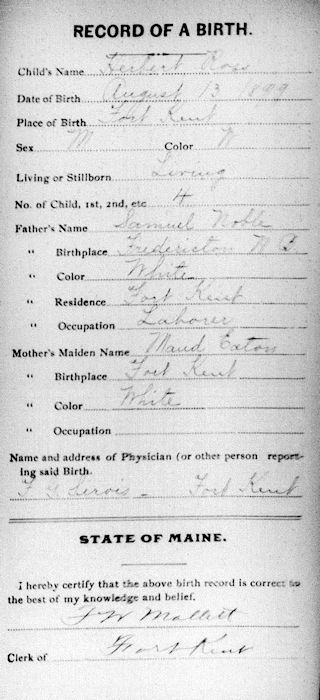 RECORD OF A BIRTH.
Child's Name Herbert Ross
Date of Birth August 13 1899
Place of Birth Fort Kent
Sex M Color W
Living or Stillborn Living
No. of Child, 1st, 2nd, etc 4
Father's Name Samuel Noble
" Birthplace Fredericton N B
" Color White
" Residence Fort Kent
" Occupation Laborer
Mother's Maiden Name Maud Eaton
" Birthplace Fort Kent
" Color White
" Occupation
Name and address of Physician (or other person report-
ing said Birth.
F G Sirois - Fort Kent
STATE OF MAINE.
I hereby certify that the above birth record is correct to
the best of my knowledge and belief.
F W Mallett
Clerk of Fort Kent